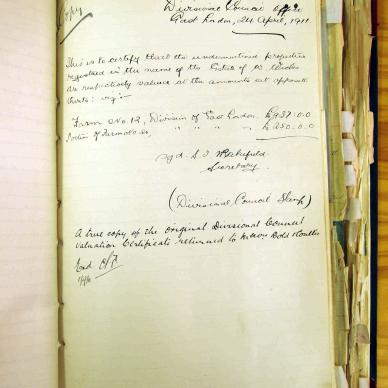 Copy
Divisional Council Office
East London, 24 April, 1911.
This is to certify that the undermentioned properties
registered in the name of the Estate of W.
are respectively valued at the amounts set opposite
theirs: viz:-
Farm No. 12, Division of East London. £937.0.0
Portion of Farm £250.0.0
sgd. S. J. Wakefield
Secretary.
(Divisional Council Stamp)
A true copy of the original Divisional Council
Valuation Certificate returned to Messrs Bold